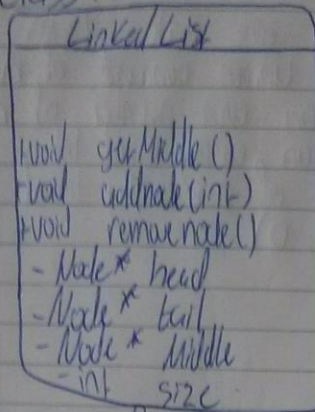 Linked List
+void getMiddle()
+void addnode(int)
+void removenode()
- Node* head
- Node* tail
- Node* Middle
- int size